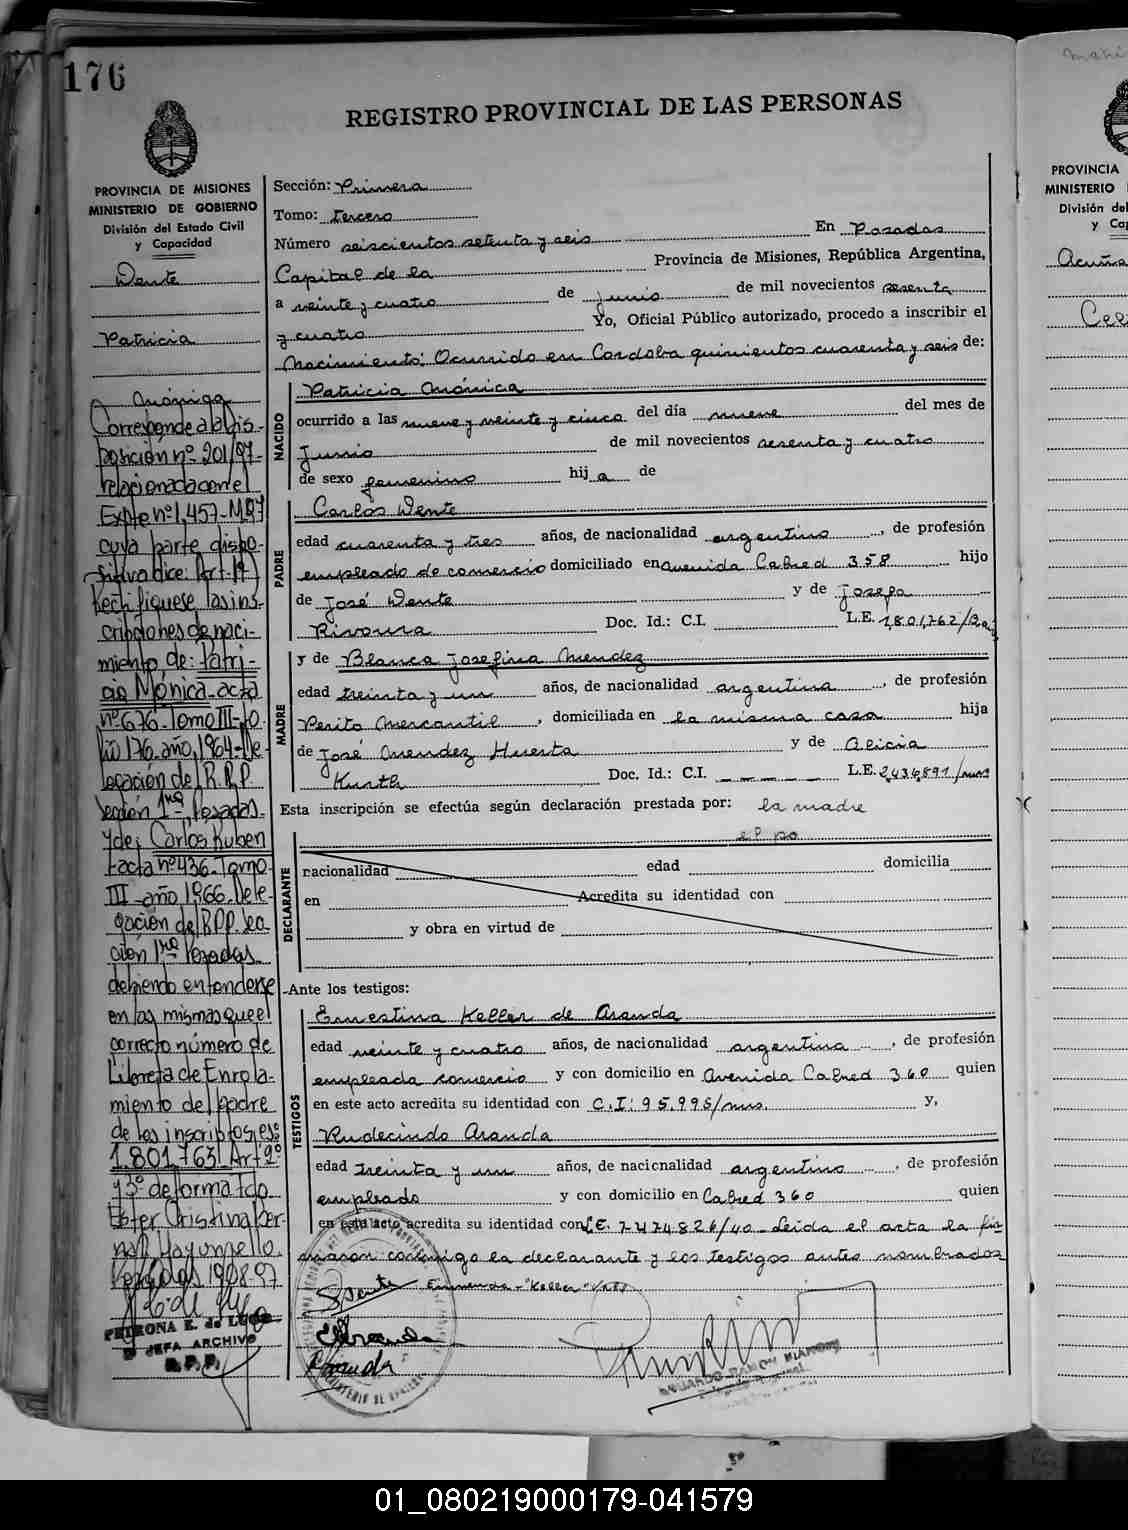 176
REGISTRO PROVINCIAL DE LAS PERSONAS
PROVINCIA DE MISIONES
MINISTERIO DE GOBIERNO
División del Estado Civil
y Capacidad
Wente
Patricia
Mónica
Corresponde a la Dis-
posición nº 201/97-
relacionada con el
Expte nº 1,457-M-97
cuya parte dispo-
sitiva dice: Art. 1º)
Rectifíquese las ins-
cripciones de naci-
miento de: Patri-
cia Mónica-acta
nº 676-Tomo III-fo-
lio 176-año, 1964-De-
legación del R.P.P.
Sección 1ra, Posadas-
y de: Carlos Ruben
acta nº 436-Tomo
III-año 1966-Dele-
gación del R.P.P. Sec-
ción 1ra Posadas-
debiendo entenderse
en las mismas que el
correcto número de
Libreta de Enrola-
miento del padre
de los inscriptos es:
1.801.763. Art 2º
y 3º de forma Fdo
Ester Cristina Ber-
nal
Posadas 19-08-97
PETRONA E. de LUGO
JEFA ARCHIVO
R.P.P.
Sección: Primera
Tomo: tercero
Número seiscientos setenta y seis En Posadas
Capital de la Provincia de Misiones, República Argentina,
a veinte y cuatro de junio de mil novecientos sesenta
y cuatro Yo, Oficial Público autorizado, procedo a inscribir el
Nacimiento: Ocurrido en Cordoba quinientos cuarenta y seis de:
NACIDO
Patricia Mónica
ocurrido a las nueve y veinte y cinco del día nueve del mes de
Junio de mil novecientos sesenta y cuatro
de sexo femenino hija de
PADRE
Carlos Wente
edad cuarenta y tres años, de nacionalidad argentino, de profesión
empleado de comercio domiciliado en avenida Cabred 358 hijo
de José Wente y de Josefa
Rivoura Doc. Id.: C.I. L.E. 1,801,762/
MADRE
y de Blanca Josefina Mendez
edad treinta y un años, de nacionalidad argentina, de profesión
Perito Mercantil, domiciliada en la misma casa hija
de José Mendez Huerta y de Alicia
Kurth Doc. Id.: C.I. L.E. 2,436,891/mns
Esta inscripción se efectúa según declaración prestada por: la madre
DECLARANTE
nacionalidad edad domicilia
en Acredita su identidad con
y obra en virtud de
Ante los testigos:
TESTIGOS
Ernestina Keller de Aranda
edad veinte y cuatro años, de nacionalidad argentina, de profesión
empleada comercio y con domicilio en Avenida Cabred 360 quien
en este acto acredita su identidad con C.I: 95.995/mns. y,
Rudecindo Aranda
edad treinta y un años, de nacionalidad argentino, de profesión
empleado y con domicilio en Cabred 360 quien
en este acto acredita su identidad con L.E. 7.474826/40-Leida el acta la fir-
maron conmigo la declarante y los testigos antes nombrados
Enmienda-"Keller" Vale
EAranda
RAranda
EDUARDO RAMON
PROVINCIA
MINISTERIO
División del
y Cap
Acuña
01_080219000179-041579